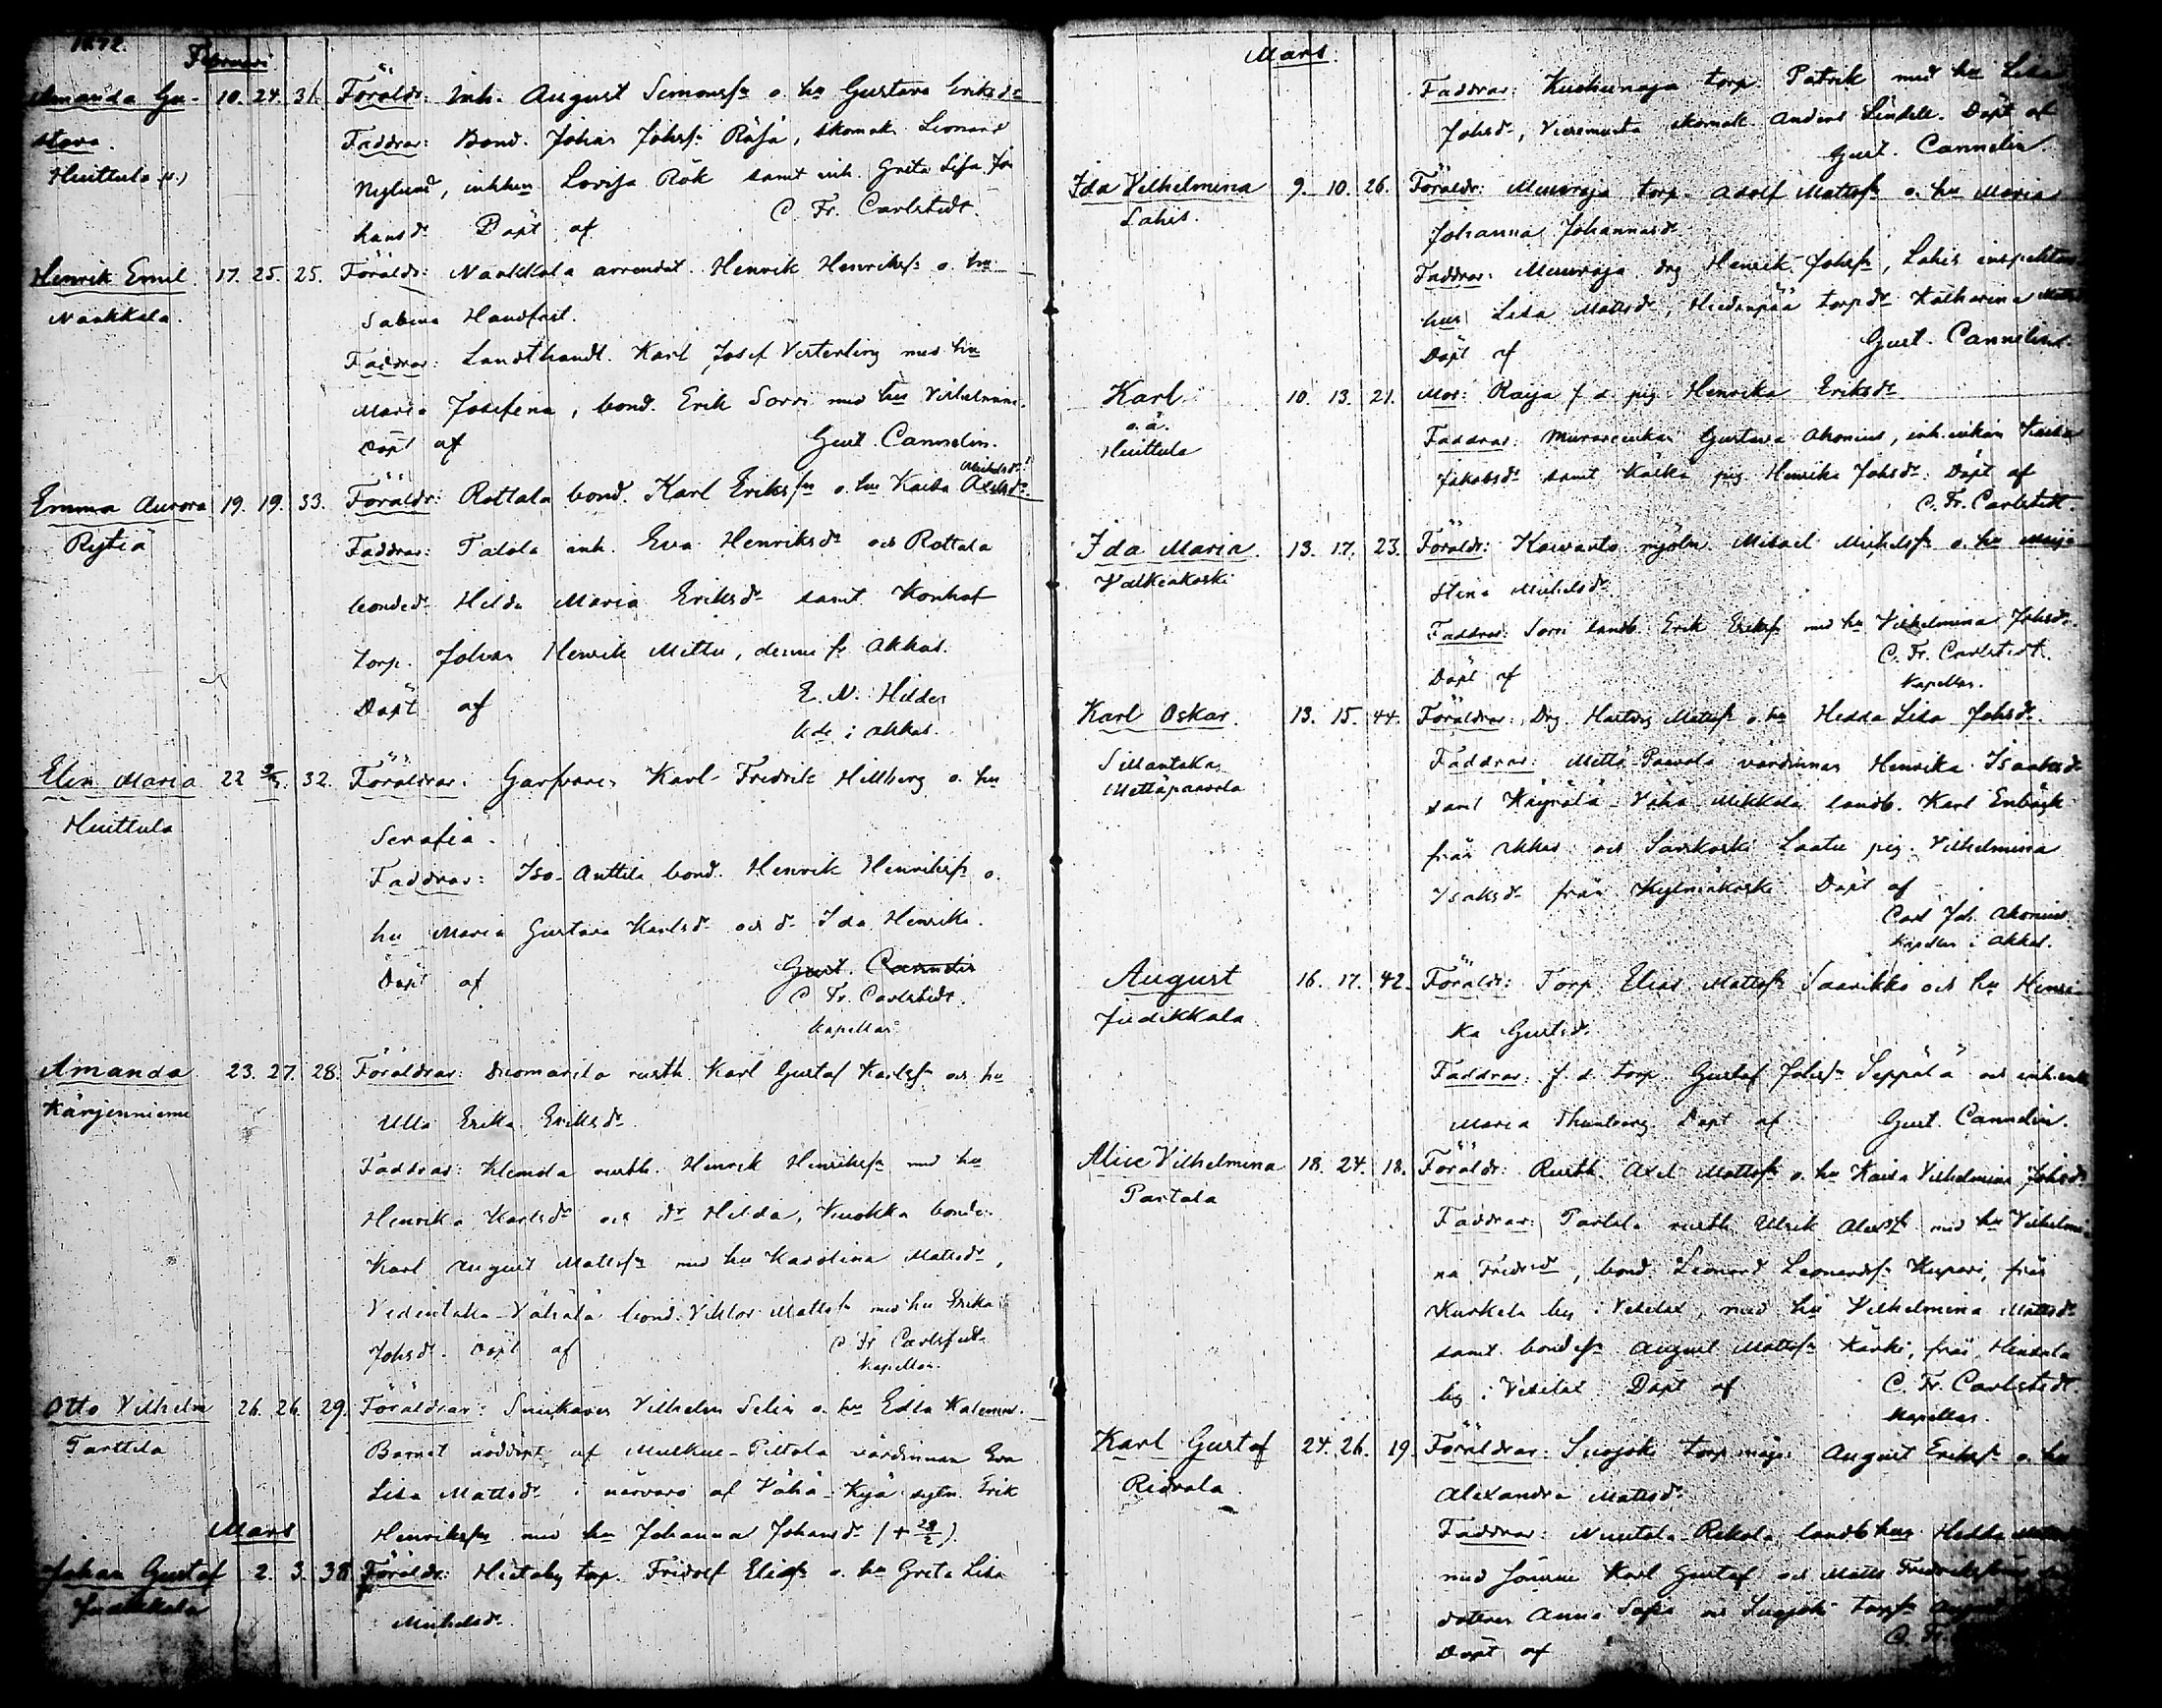 1872.
Februari
Amanda Gu- 10. 24. 31. Föräldr: Inh. August Simonsson o. hu Gustava Eriksdr
stava. Faddrar: Bond. Johan Johsson Röfsä, skomak. Leonard
Huittula (s.) Nylund, inhkan Lovisa Rök samt inh. Greta Lisa Jo
hansdr Döpt af C. Fr. Carlstedt.
Henrik Emil 17. 25. 25. Föräldr: Naakkala arrendat. Henrik Henriksson o. hu
Naakkala. Sabina Handfast.
Faddrar: Landthandl. Karl Josef Vesterling med hu
Maria Josefina, bond. Erik Sorri med hu Vilhelmina.
Döpt af Gust. Cannelin.
Michelsdr!
Emma Aurora 19. 19. 33. Föräldr: Rottala bond. Karl Eriksson o. hu Kaisa Axelsdr
Rytiä Faddrar: Talola inh. Eva Henriksdr och Rottala
bondedr Hilda Maria Eriksdr samt Konhof
torp. Johan Henrik Mitta, denne fr. Akkas.
Döpt af E. N. Hilden
kde i Akkas.
Elin Maria 22 3/3. 32. Föräldrar: Garfvaren Karl Fredrik Hillberg o. hu
Huittula Serafia.
Faddrar: Iso-Anttila bond. Henrik Henriksson o.
hu Maria Gustava Karlsdr och dr Ida Henrika.
Döpt af Gust. Cannelin
C. Fr. Carlstedt.
Kapellan
Amanda 23. 27. 28. Föräldrar: Suomarila rusth. Karl Gustaf Karlsson och hu
Kärjenniemi Ulla Erika Eriksdr
Faddrar: Klemola rusth. Henrik Henriksson med hu
Henrika Karlsdr och dr Hilda, Kuokka bonden
Karl August Mattsson med hu Karolina Mattsdr,
Vedentaka-Välsälä bond. Viktor Mattsson med hu Erika
Johsdr. Döpt af C Fr Carlstedt
Kapellan.
Otto Vilhelm 26. 26. 29. Föräldrar: Snickaren Vilhelm Selin o. hu Edla Kalenius.
Tarttila Barnet nöddöpt af Mulkue-Piltola värdinnan Eva
Lisa Mattsdr i närvaro af Vähä-Kyä sytn. Erik
Henriksson med hu Johanna Johansdr (+ 28/2).
Mars
Johan Gustaf 2. 3. 38 Föräldr: Hietaby torp. Fridolf Eliasson o. hu Greta Lisa
Jutikkala Michelsdr.
Mars.
Faddrar: Kuchunoja torp. Patrik med hu Lisa
Johsdr, Vieremusta skomak. Anders Lindell. Döpt af
Gust. Cannelin.
Ida Vilhelmina 9. 10. 26. Föräldr: Muuroja torp. Adolf Mattsson o. hu Maria
Lahis. Johanna Johannesdr
Faddrar: Muuroja drg Henrik Johsson, Lahis inspektors
hus Lisa Mattsdr, Hiedanpää torpdr Katharina Matts
Döpt af Gust. Cannelin.
Karl 10. 13. 21. Mor: Raija f d. pig. Henrika Eriksdr
o.ä. Faddrar: Murareenkan Gustava Ahonius, inh.enkan Kaisa
Huittula Jakobsdr samt Kaikka pig Henrika Johsdr. Döpt af
C. Fr. Carlstedt.
Ida Maria. 13. 17. 23. Föräldr: Koivunto mjöln. Mikael Michelsson o. hu Maija
Valkeakoski Stina Michelsdr.
Faddrar: Sorri landb. Erik Eriksson med hu Vilhelmina Johsdr.
Döpt af C. Fr. Carlstedt.
Kapellan.
Karl Oskar. 13. 15. 44. Föräldrar: Drg. Hartvig Mattsson o. hu Hedda Lisa Johsdr.
Sillantaka Faddrar: Mettä-Paavola värdinnan Henrika Isaaksdr
Mettäpaavola samt Käyrälä-Vähä-Mikkola landb. Karl Enbäck
från Akkas och Savikoski Laatu pig. Vilhelmina
Isaksdr från Kylmäkoski Döpt af
Carl Joh. Ahonius.
Kapellan i Akkas.
August 16. 17. 42. Föräldr: Torp. Elias Mattsson Saarikko och hu Henri-
Jutikkala ka Gustsdr.
Faddrar: f. d. torp. Gustaf Johsson Seppälä och inh.enk
Maria Thunberg. Döpt af Gust. Cannelin.
Alice Vilhelmina 18. 24. 18. Föräldr: Rusth. Axel Mattsson o. hu Kaisa Vilhelmina Johsdr
Partala Faddrar: Partala rusth. Ulrik Alexsson med hu Vilhelmi-
na Fredrdr, bond. Leonard Leonardsson Kupari, från
Kurkela by i Vesilax, med hu Vilhelmina Mattsdr
samt bondesn August Mattsson Kärki, från Hinsala
by i Vesilax. Döpt af C. Fr. Carlstedt
Kapellan.
Karl Gustaf 24. 26. 19. Föräldrar: Suojoki torp.måge. August Eriksson o. hu
Ridvala. Alexandra Mattsdr.
Faddrar: Nuutala-Rekola landb hus Hedda
med sönerne Karl Gustaf och Matts Fredriksson
dottren Anna Sofia och Suojoki torpsn August
Döpt af C. Fr.